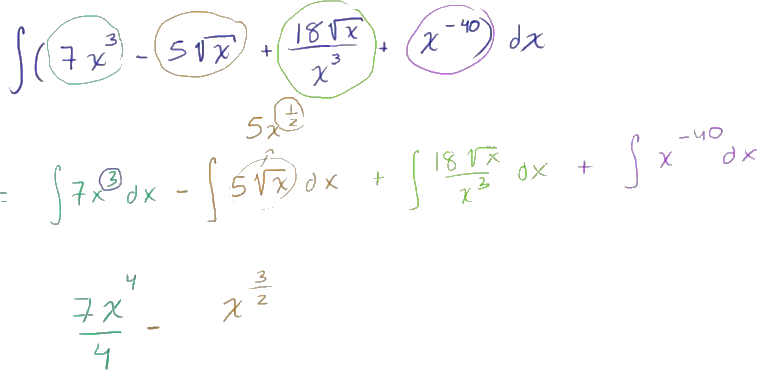 ∫(7x³ - 5√x + 18√x/x³ + x⁻⁴⁰) dx
5x^(1/2)
= ∫7x³ dx - ∫5√x dx + ∫18√x/x³ dx + ∫x⁻⁴⁰ dx
7x⁴/4 - x^(3/2)